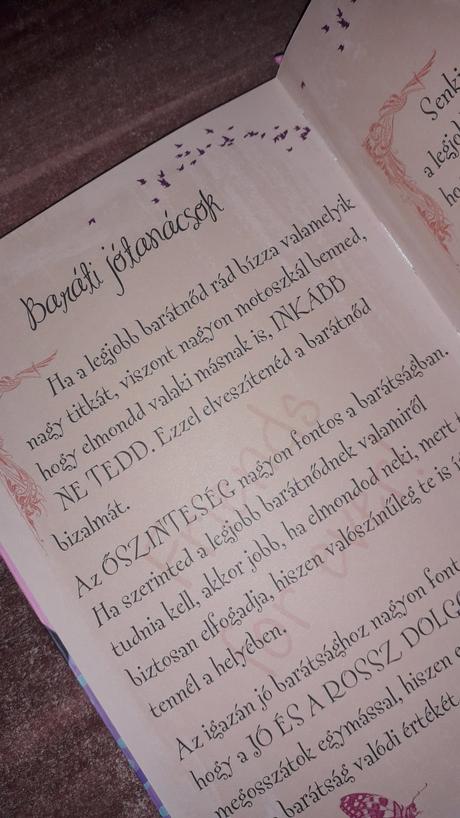 Baráti jótanácsok
Ha a legjobb barátnőd rád bízza valamelyik
nagy titkát, viszont nagyon motoszkál benned,
hogy elmondd valaki másnak is, INKÁBB
NE TEDD. Ezzel elveszítenéd a barátnőd
bizalmát.
Az ŐSZINTESÉG nagyon fontos a barátságban.
Ha szerinted a legjobb barátnődnek valamiről
tudnia kell, akkor jobb, ha elmondod neki, mert
biztosan elfogadja, hiszen valószínűleg te is
tennél a helyében.
Az igazán jó barátsághoz nagyon
hogy a JÓ ÉS A ROSSZ
megosszátok egymással, hiszen
barátság valódi értékét
Friends
for ever!
a